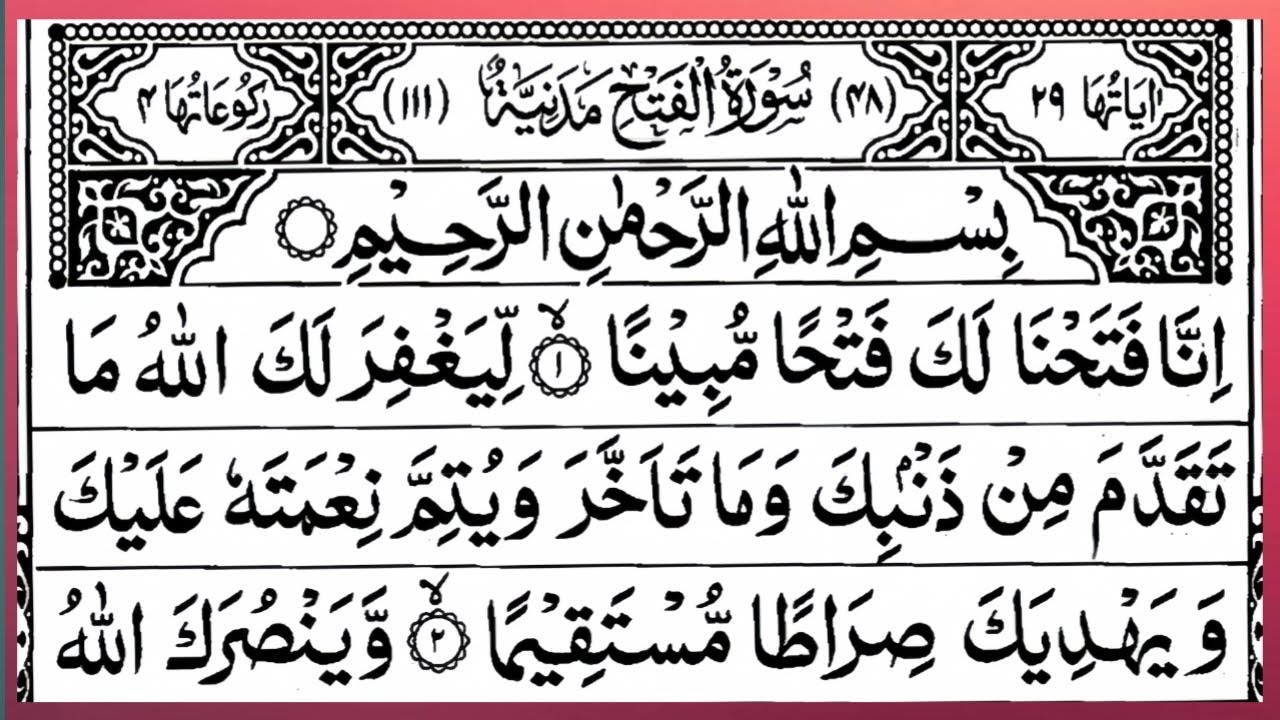 اٰيَاتُهَا ٢٩ (٤٨) سُوْرَةُ الْفَتْحِ مَدَنِيَّةٌ (١١١) رُكُوْعَاتُهَا ٤
بِسْمِ اللّٰهِ الرَّحْمٰنِ الرَّحِيْمِ
اِنَّا فَتَحْنَا لَكَ فَتْحًا مُّبِيْنًا ۙ‏ ﴿١﴾ لِّيَغْفِرَ لَكَ اللّٰهُ مَا
تَقَدَّمَ مِنْ ذَنْۢبِكَ وَمَا تَاَخَّرَ وَيُتِمَّ نِعْمَتَهٗ عَلَيْكَ
وَيَهْدِيَكَ صِرَاطًا مُّسْتَقِيْمًا ۙ‏ ﴿٢﴾ وَّيَنْصُرَكَ اللّٰهُ